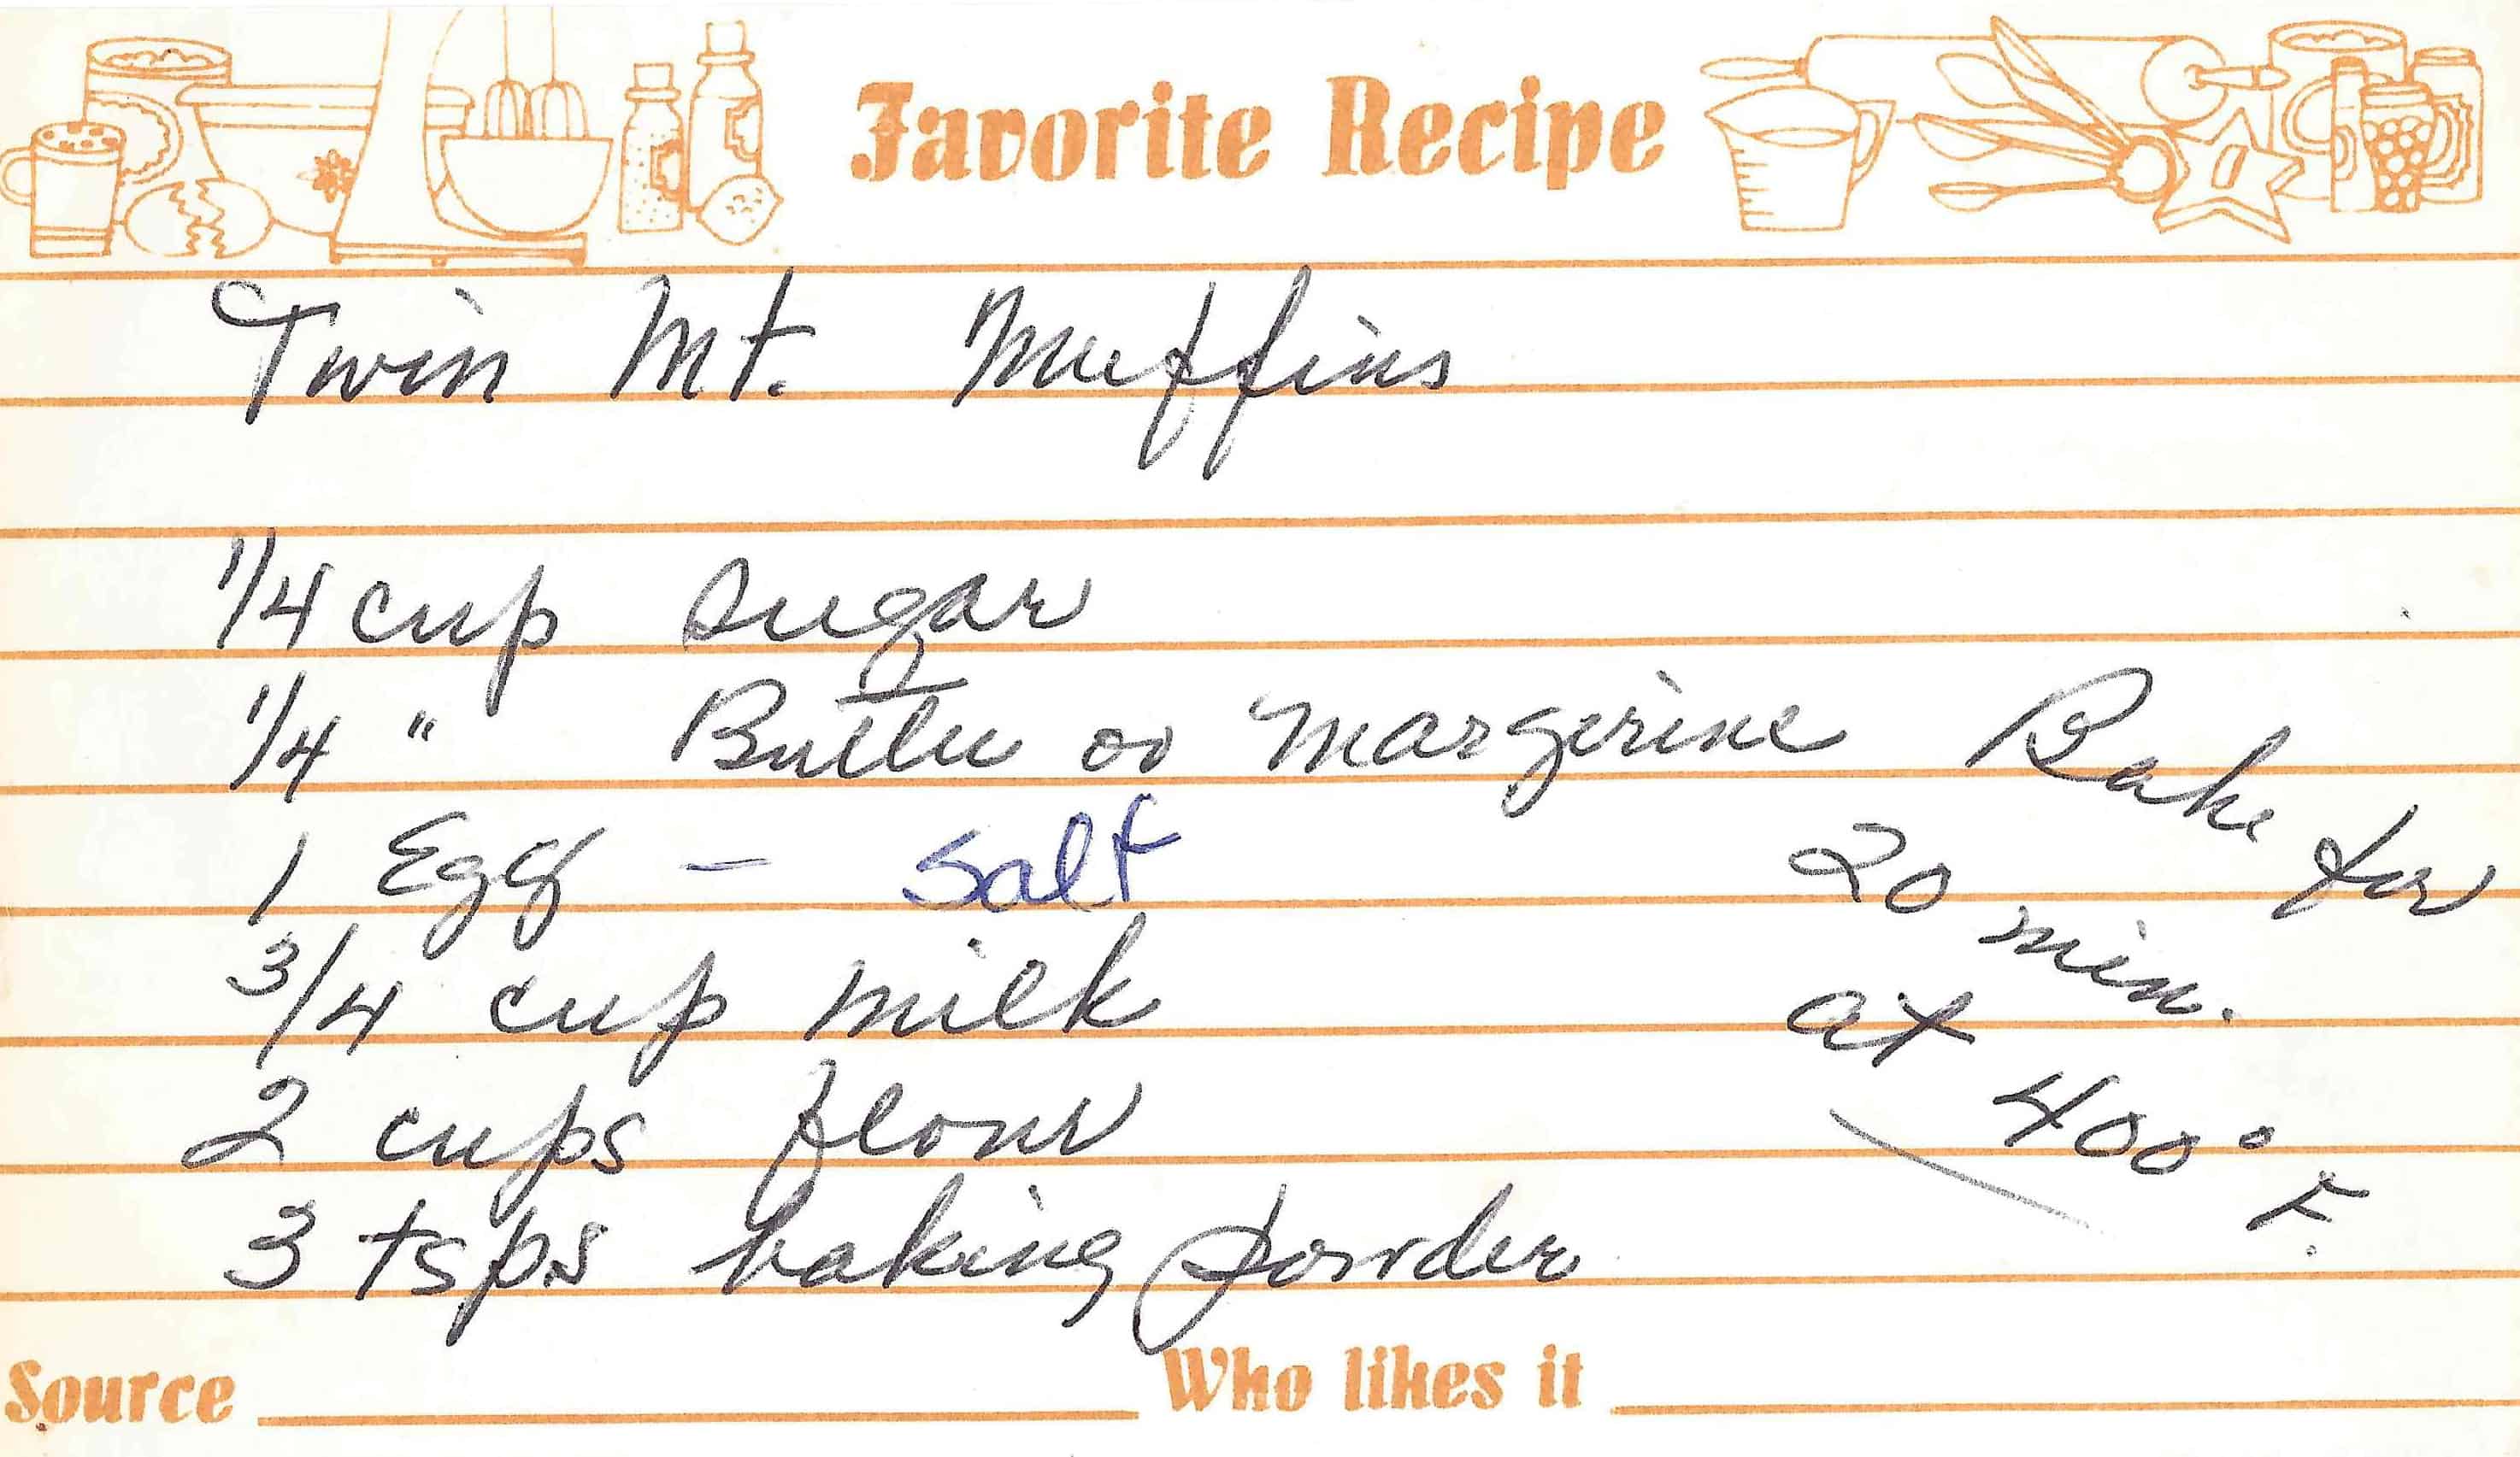 Favorite Recipe
Twin Mt. Muffins
1/4 cup sugar
1/4 " Butter or Margerine
1 Egg - salt
3/4 cup milk
2 cups flour
3 tsps baking powder
Bake for
20 min.
at 400° F.
Source
Who likes it